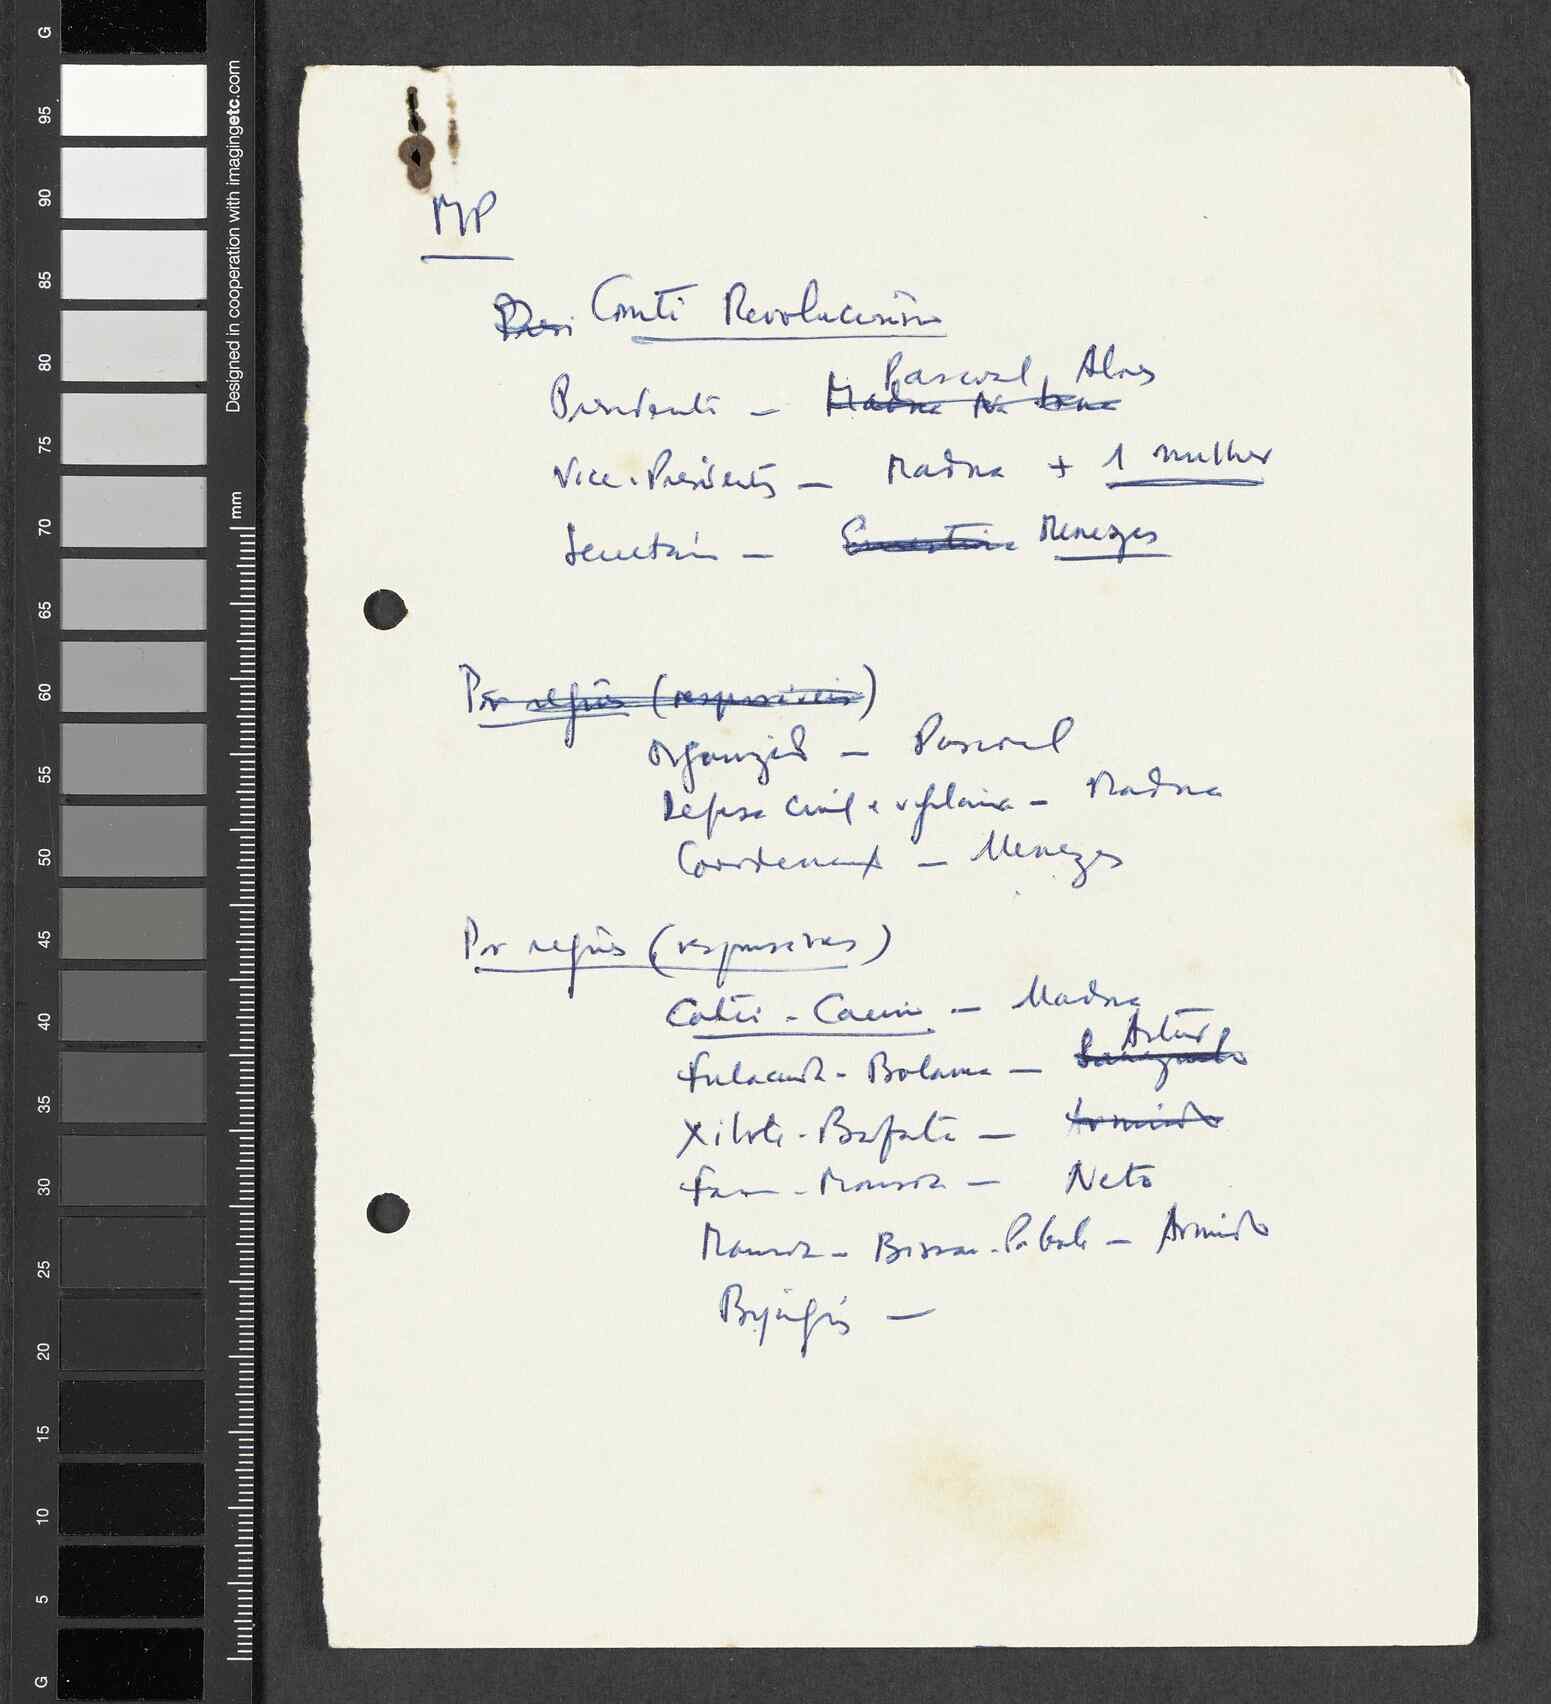 MP
Comité Revolucionário
Pascoal Alves
Presidente –
Vice-Presidentes – Madna + 1 mulher
Secretário – Menezes
Por região (responsáveis)
Organização – Pascoal
Defesa civil e vigilância – Madna
Coordenação – Menezes
Por região (responsáveis)
Catió - Cacine – Madna
Artur
Fulacunda - Bolama –
Xitole - Bafatá – Armindo
Farim - Mansoa – Neto
Mansoa - Bissau - – Armindo
Bijagós –
G
95
90
85
80
75
70
65
60
55
50
45
40
35
30
25
20
15
10
5
G
Designed in cooperation with imagingetc.com
mm